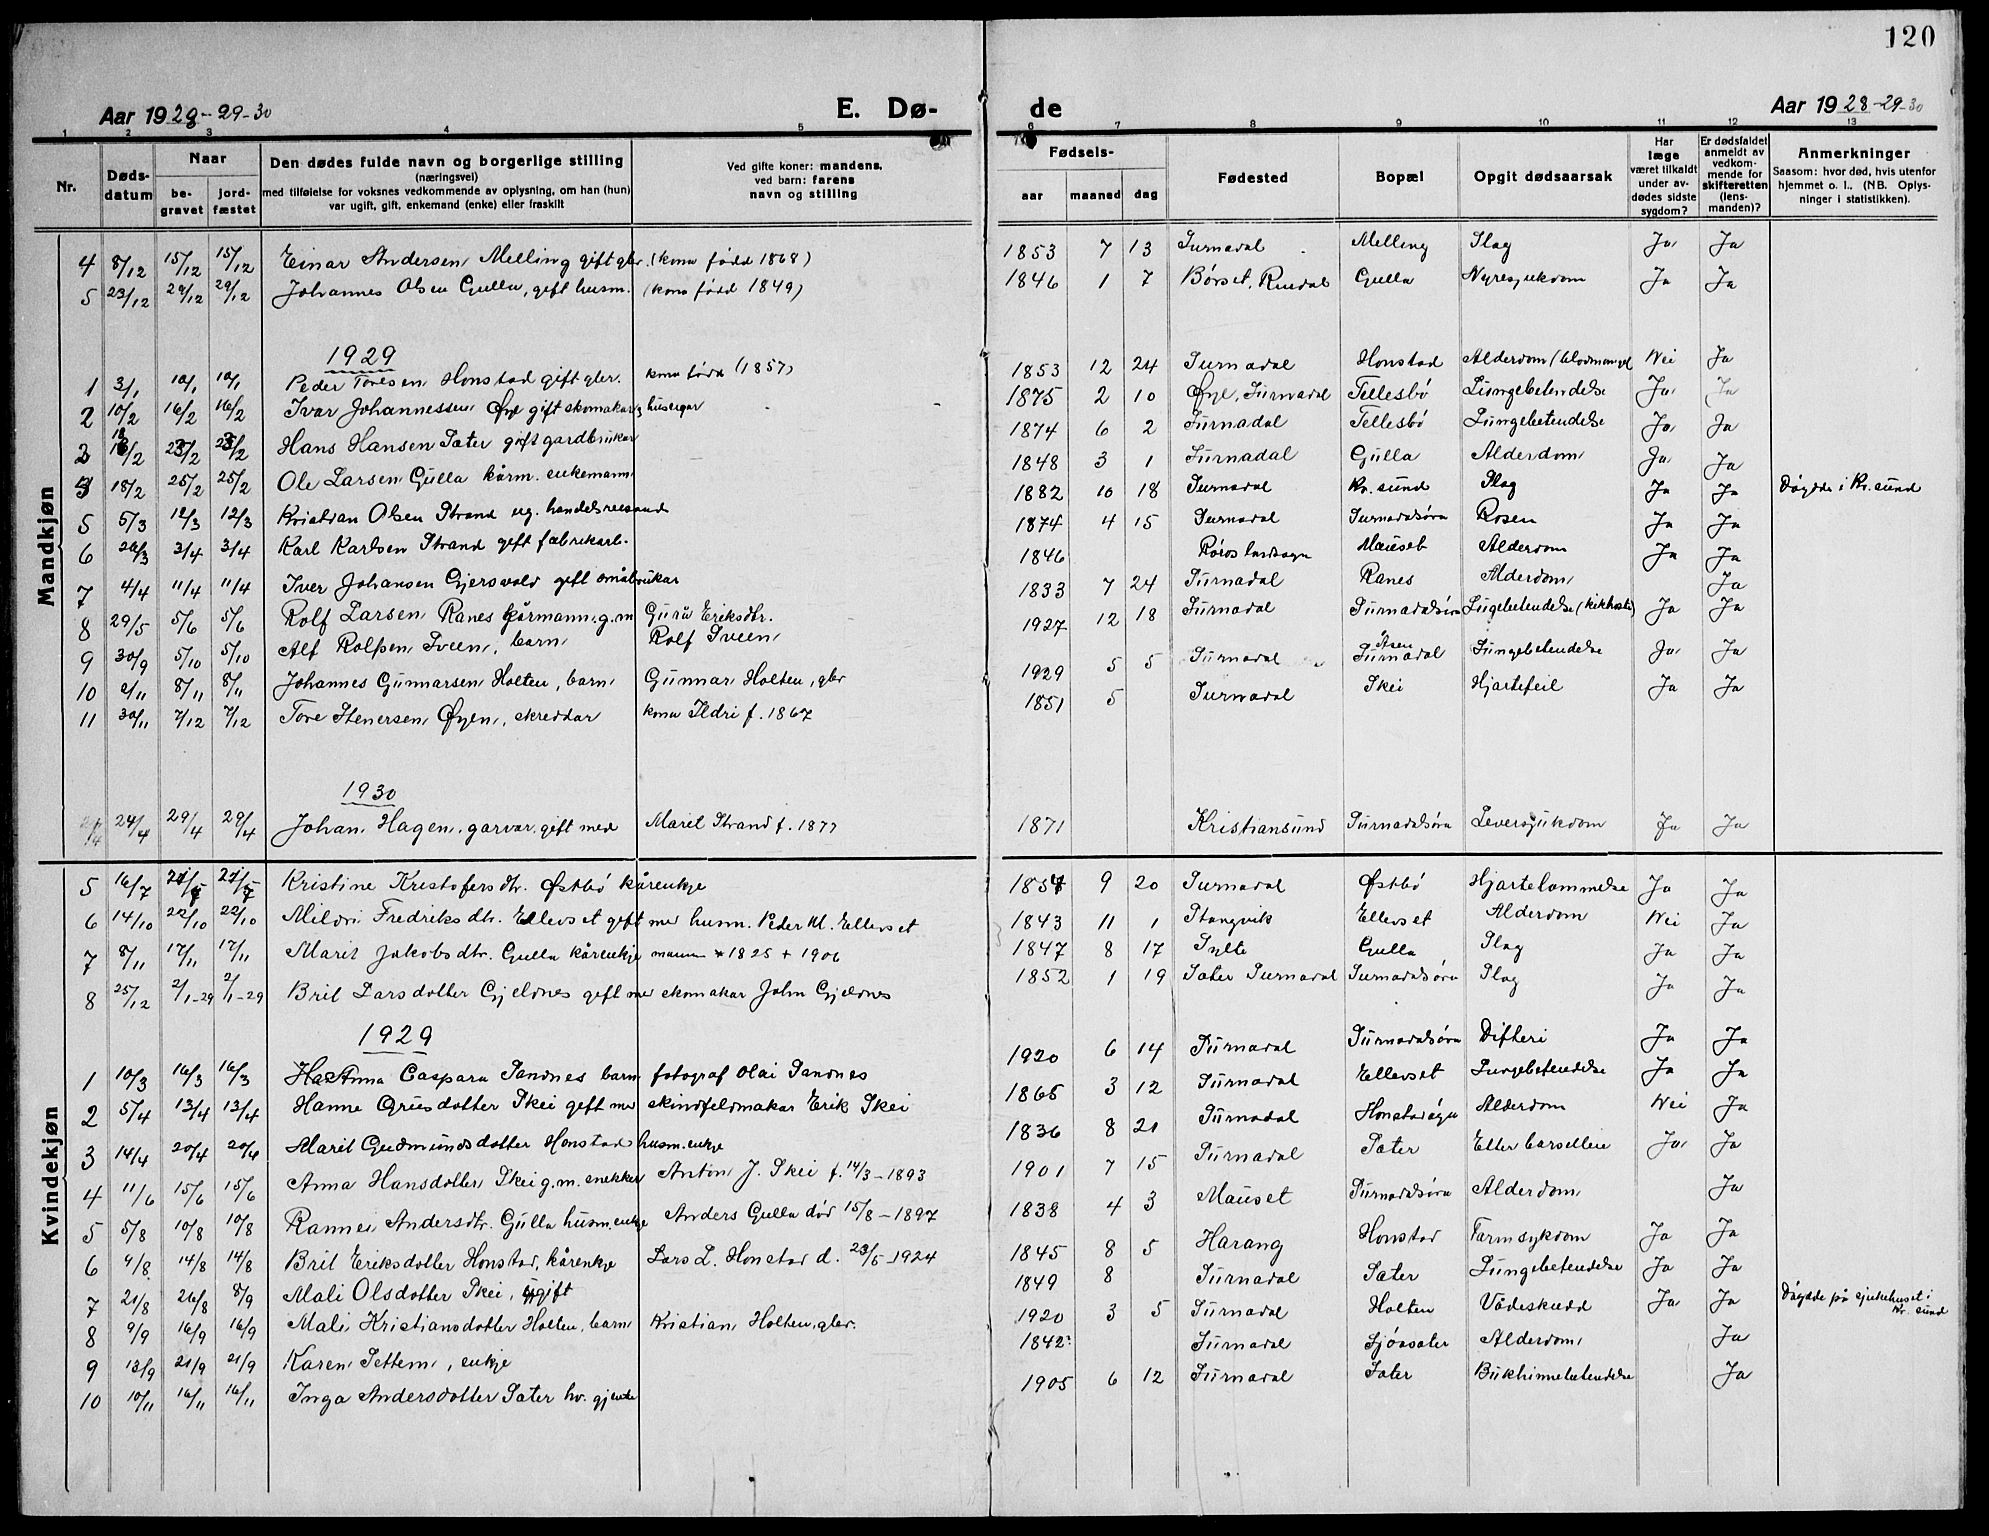 120
Aar 1928-29-30 E. Dø- de Aar 1928-29-30
1 2 3 4 5 6 7 8 9 10 11 12 13
Nr. Døds-datum Naar be-gravet jord-fæstet Den dødes fulde navn og borgerlige stilling (næringsvei) med tilføielse for voksnes vedkommende av oplysning, om han (hun) var ugift, gift, enkemand (enke) eller fraskilt Ved gifte koner: mandens, ved barn: farens navn og stilling Fødsels- aar maaned dag Fødested Bopæl Opgit dødsaarsak Har læge været tilkaldt under av-dødes sidste sygdom? Er dødsfaldet anmeldt av vedkom-mende for skifteretten (lens-manden)? Anmerkninger Saasom: hvor død, hvis utenfor hjemmet o. l.. (NB. Oplys-ninger i statistikken).
Mandkjøn
4 8/12 15/12 15/12 Einar Andersen Melling gift gbr. (kona født 1868) 1853 7 13 Surnadal Melling Slag Ja Ja
5 23/12 29/12 29/12 Johannes Olsen Gulla, gift husm. (kona født 1849) 1846 1 7 Børset, Rindal Gulla Nyresjukdom Ja Ja
1929
1 3/1 10/1 10/1 Peder Toresen Honstad gift gbr. kona født (1857) 1853 12 24 Surnadal Honstad Alderdom (blodmangel Nei Ja
2 10/2 16/2 16/2 Ivar Johannessen Øye gift skomakar, huseigar 1875 2 10 Øye, Surnadal Tellesbø Lungebetendelse Ja Ja
3 18/2 25/2 25/2 Hans Hansen Sæter gift gardbrukar 1874 6 2 Surnadal Tellesbø Lungebetendelse Ja Ja
18/2 25/2 25/2 Ole Larsen Gulla kårm. enkemann 1848 3 1 Surnadal Gulla Alderdom Ja Ja
5 5/3 12/3 12/3 Kristian Olsen Strand ug. handelsreisande 1882 10 18 Surnadal Kr. sund Slag Ja Ja Døydde i Kr. sund
6 26/3 3/4 3/4 Karl Karlsen Strand gift fabrikarb. 1874 4 15 Surnadal Surnadalsøra Rosen Ja Ja
7 4/4 11/4 11/4 Iver Johansen Gjersvold gift småbrukar 1846 Røros landsogn Mauset Alderdom Ja Ja
8 29/5 5/6 5/6 Rolf Larsen Ranes kårmann g.m Gurå Eriksdtr. 1833 7 24 Surnadal Ranes Alderdom Ja
9 30/9 5/10 5/10 Alf Rolfsen Sveen, barn Rolf Sveen 1927 12 18 Surnadal Surnadalsøra Lugebetendelse (kikhoste) Ja Ja
10 2/11 8/11 8/11 Johannes Gunnarsen Holten, barn Gunnar Holten, gbr 1929 5 5 Surnadal Åsen Surnadal Lungebetendelse Ja Ja
11 30/11 7/12 7/12 Tore Stenersen Øyen, skreddar kona Ildri f. 1867 1851 5 Surnadal Skei Hjartefeil Ja Ja
1930
24/4 29/4 29/4 Johan Hagen, garvar, gift med Marit Strand f. 1877 1871 Kristiansund Surnadalsøra Leversjukdom Ja Ja
Kvindekjøn
5 16/7 21/7 21/7 Kristine Kristofersdtr. Østbø kårenkje 1854 9 20 Surnadal Østbø Hjartelammelse Ja Ja
6 14/10 22/10 22/10 Mildri Fredriksdtr. Ellevset gift mе husm. Peder M. Ellevset 1843 11 1 Stangvik Ellevset Alderdom Nei Ja
7 8/11 17/11 17/11 Marit Jakobsdtr. Gulla kårenkje mann * 1825 + 1906 1847 8 17 Sylte Gulla Slag Ja Ja
8 25/12 2/1-29 2/1-29 Brit Larsdotter Gjeldnes gift me skomakar John Gjeldnes 1852 1 19 Sæter Surnadal Surnadalsøra Slag Ja Ja
1929
1 10/3 16/3 16/3 Anna Caspara Sandnes barn fotograf Olai Sandnes 1920 6 14 Surnadal Surnadalsøra Difteri Ja Ja
2 5/4 13/4 13/4 Hanne Grusdotter Skei gift me skindfeldmakar Erik Skei 1865 3 12 Surnadal Ellevset Lungebetendelse Ja Ja
3 14/4 20/4 20/4 Marit Gudmundsdotter Honstad husm.enkje 1836 8 21 Surnadal Honstadøyn Alderdom Nei Ja
4 11/6 15/6 15/6 Anna Hansdotter Skei g.m. snekker Anton J. Skei f. 14/3-1893 1901 7 15 Surnadal Sæter Etter barselleie Ja Ja
5 5/8 10/8 10/8 Rannei Andersdtr. Gulla husm.enkje Anders Gulla død 15/8-1897 1838 4 3 Mauset Surnadalsøra Alderdom Ja
6 9/8 14/8 14/8 Brit Eriksdotter Honstad, kårenkje Lars L. Honstad d. 23/5-1924 1845 8 5 Harang Honstad Tarmsykdom Ja Ja
7 21/8 26/8 8/9 Mali Olsdotter Skei, ugift 1849 8 Surnadal Sæter Lungebetendelse Ja Ja
8 9/9 16/9 16/9 Mali Kristiansdotter Holten, barn Kristian Holten, gbr. 1920 3 5 Surnadal Holten Vådeskudd Ja Ja Døydde på sjukehuset i Kr. sund
9 13/9 21/9 21/9 Karen Settem, enkje 1842? Surnadal Sjøasæter Alderdom Ja
10 10/11 16/11 16/11 Inga Andersdotter Sæter hv. gjente 1905 6 12 Surnadal Sæter Bukhinnebetendelse Ja